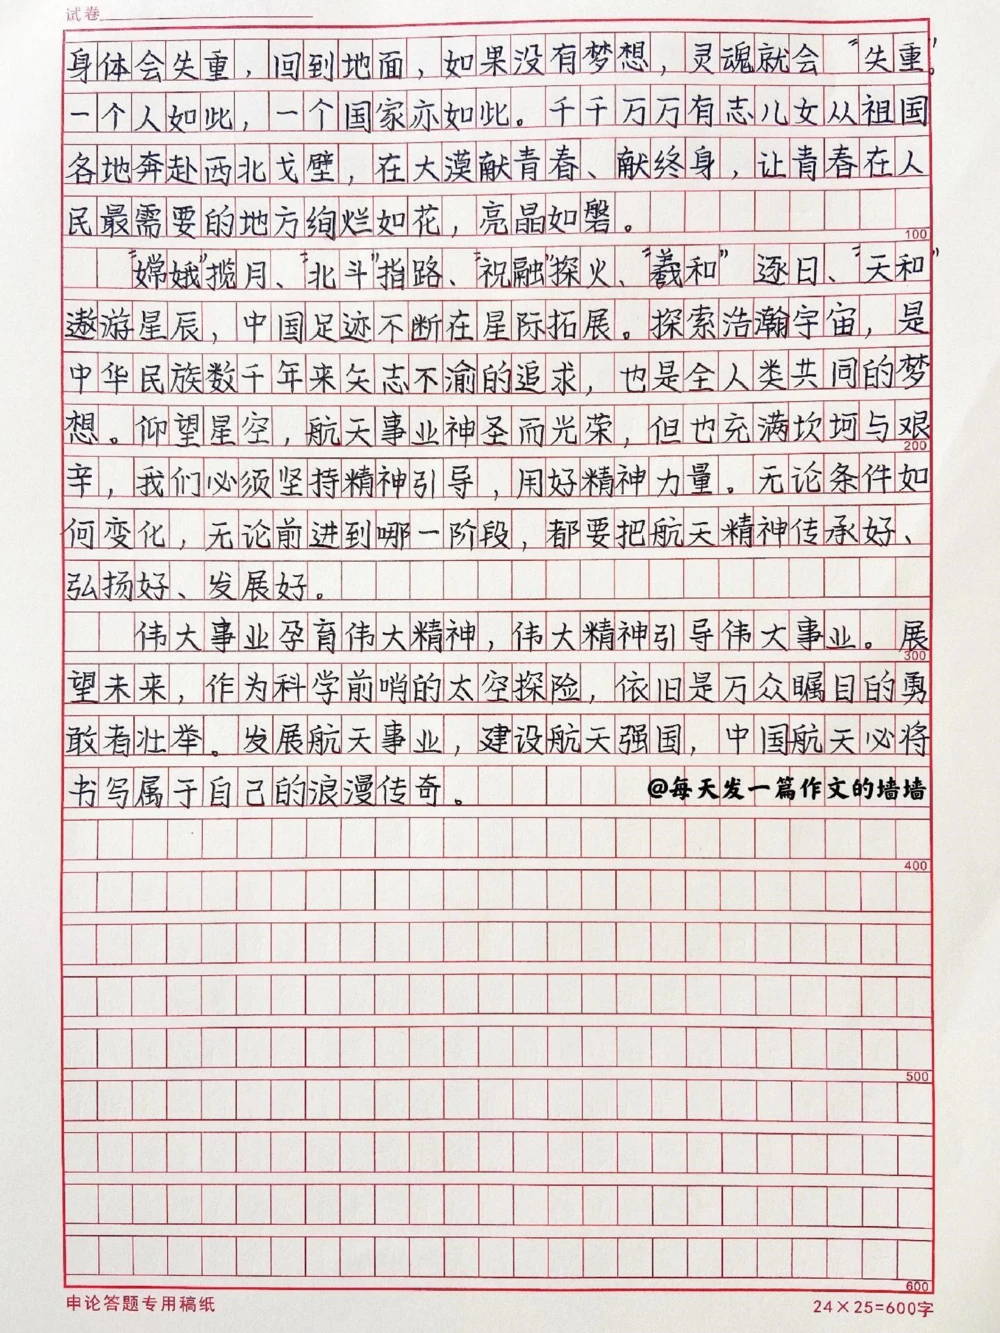 试卷
身体会失重，回到地面，如果没有梦想，灵魂就会“失重”。
一个人如此，一个国家亦如此。千千万万有志儿女从祖国
各地奔赴西北戈壁，在大漠献青春、献终身，让青春在人
民最需要的地方绚烂如花，亮晶如磐。
100
“嫦娥”揽月、“北斗”指路、“祝融”探火、“羲和”逐日、“天和”
遨游星辰，中国足迹不断在星际拓展。探索浩瀚宇宙，是
中华民族数千年来矢志不渝的追求，也是全人类共同的梦
想。仰望星空，航天事业神圣而光荣，但也充满坎坷与艰
200
辛，我们必须坚持精神引导，用好精神力量。无论条件如
何变化，无论前进到哪一阶段，都要把航天精神传承好、
弘扬好、发展好。
伟大事业孕育伟大精神，伟大精神引导伟大事业。展
300
望未来，作为科学前哨的太空探险，依旧是万众瞩目的勇
敢者壮举。发展航天事业，建设航天强国，中国航天必将
书写属于自己的浪漫传奇。
@每天发一篇作文的墙墙
400
500
600
申论答题专用稿纸
24×25=600字